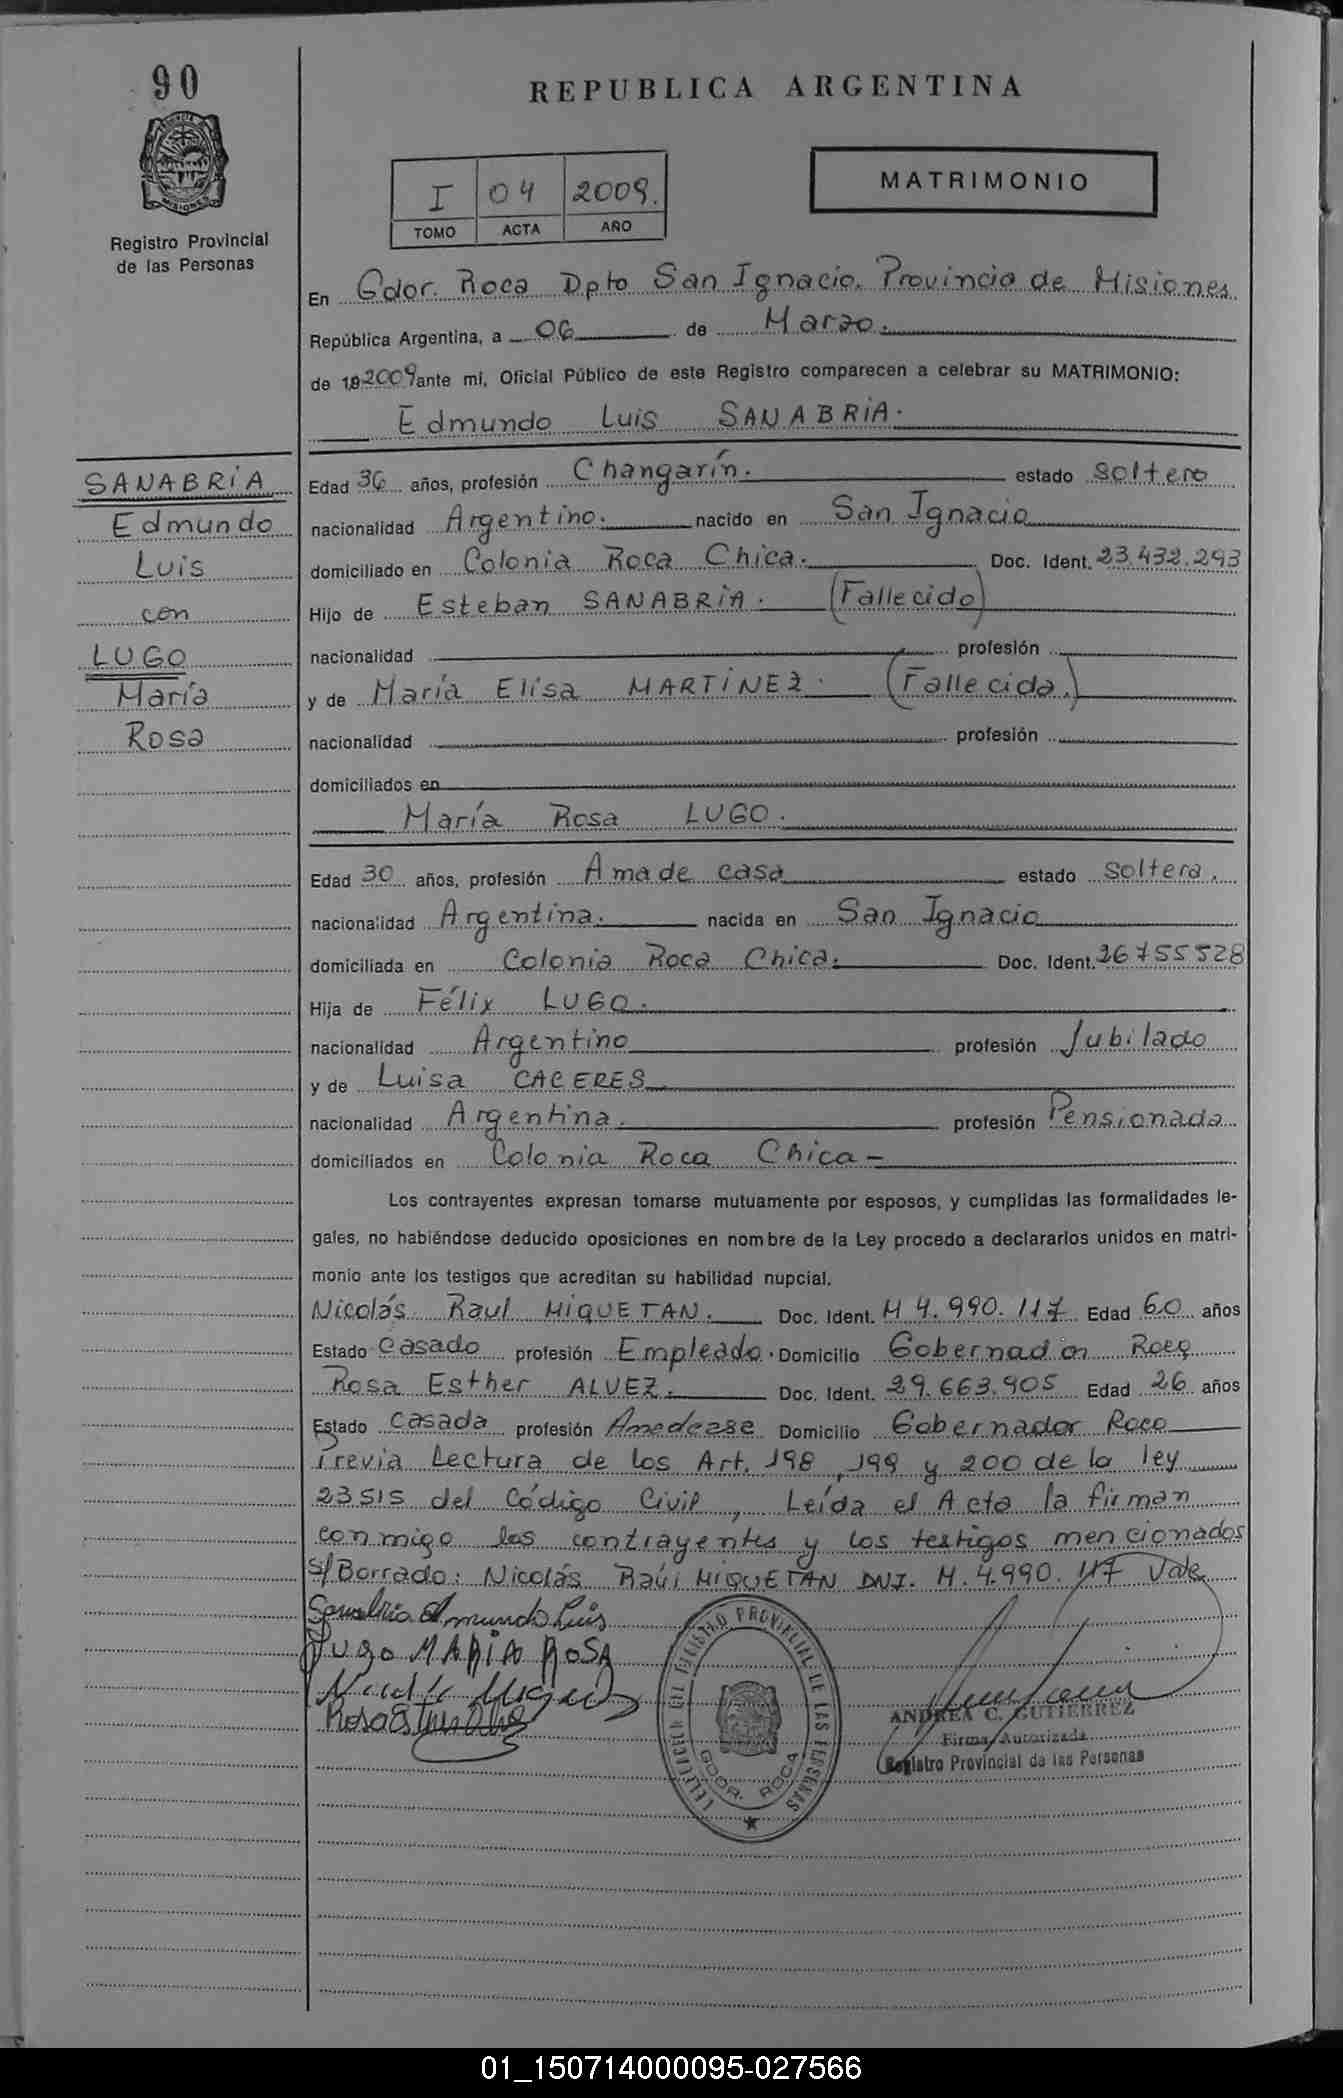 90
REPUBLICA ARGENTINA
I 04 2009.
TOMO ACTA AÑO
MATRIMONIO
Registro Provincial
de las Personas
En Gdor. Roca Dpto San Ignacio. Provincia de Misiones
República Argentina, a 06 de Marzo.
de 19 2009 ante mi, Oficial Público de este Registro comparecen a celebrar su MATRIMONIO:
Edmundo Luis SANABRIA.
SANABRIA
Edmundo
Luis
con
LUGO
María
Rosa
Edad 36 años, profesión Changarín. estado soltero
nacionalidad Argentino. nacido en San Ignacio
domiciliado en Colonia Roca Chica. Doc. Ident. 23.432.293
Hijo de Esteban SANABRIA. (Fallecido)
nacionalidad profesión
y de María Elisa MARTINEZ. (Fallecida.)
nacionalidad profesión
domiciliados en
María Rosa LUGO.
Edad 30 años, profesión Ama de casa estado soltera.
nacionalidad Argentina. nacida en San Ignacio
domiciliada en Colonia Roca Chica. Doc. Ident. 26755528
Hija de Félix LUGO.
nacionalidad Argentino profesión Jubilado
y de Luisa CACERES
nacionalidad Argentina. profesión Pensionada
domiciliados en Colonia Roca Chica -
Los contrayentes expresan tomarse mutuamente por esposos, y cumplidas las formalidades le-
gales, no habiéndose deducido oposiciones en nombre de la Ley procedo a declararlos unidos en matri-
monio ante los testigos que acreditan su habilidad nupcial.
Nicolás Raul MIQUETAN. Doc. Ident. M 4.990.117 Edad 60 años
Estado Casado profesión Empleado. Domicilio Gobernador Roca
Rosa Esther ALVEZ. Doc. Ident. 29.663.905 Edad 26 años
Estado Casada profesión Amadecasa Domicilio Gobernador Roca
Previa Lectura de los Art. 198, 199 y 200 de la ley
23515 del Código Civil, Leída el Acta la firman
conmigo los contrayentes y los testigos mencionados
s/Borrado: Nicolás Raúl MIQUETAN DNI. M. 4.990.117 Vale
Sanabria Edmundo Luis
Lugo MARIA ROSA
REGISTRO PROVINCIAL DE LAS PERSONAS
GDOR. ROCA
ANDREA C. GUTIERREZ
Firma Autorizada
Registro Provincial de las Personas
01_150714000095-027566